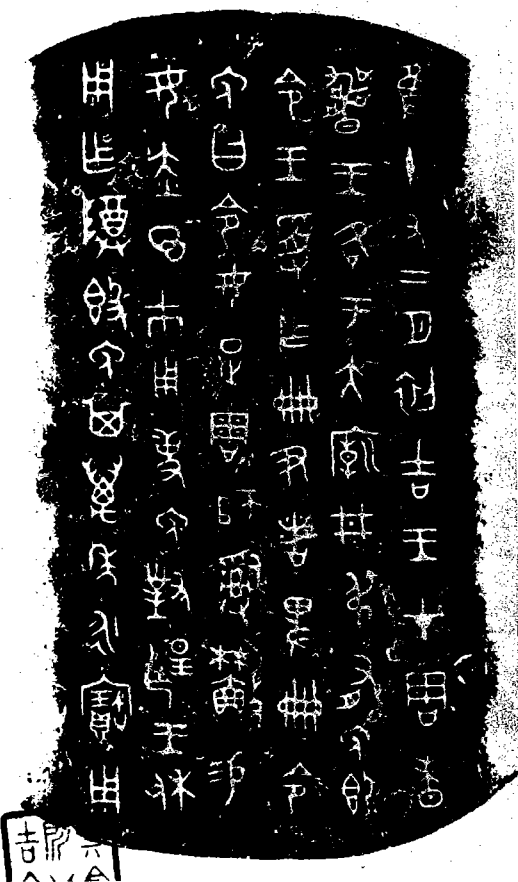 隹十又二月初吉王才周昧
爽王各于大廟井叔有免即
令王受乍冊尹者卑冊令
免曰令女疋周師𤔲㪔易
女赤市用事免對揚王休
用乍尊𣪘免其萬年永寶用